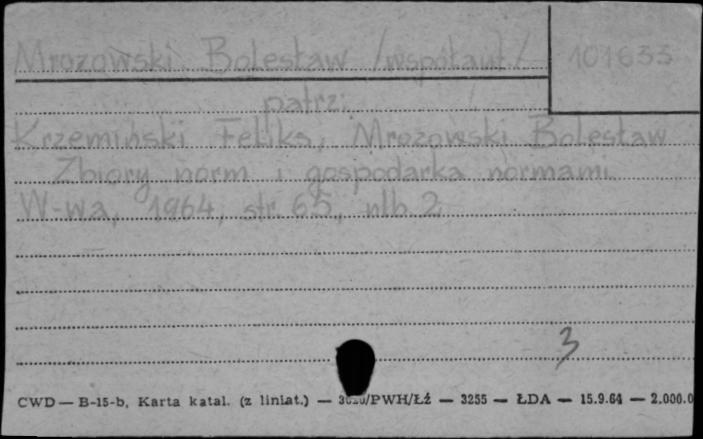 Mrozowski Bolesław /współaut./ 101633
patrz:
Krzemiński Feliks, Mrozowski Bolesław
Zbiory norm i gospodarka normami
W-wa, 1964, str. 65, nlb. 2
3
CWD — B-15-b, Karta katal. (z liniat.) — /PWH/Łź — 3255 — ŁDA — 15.9.64 — 2.000.0